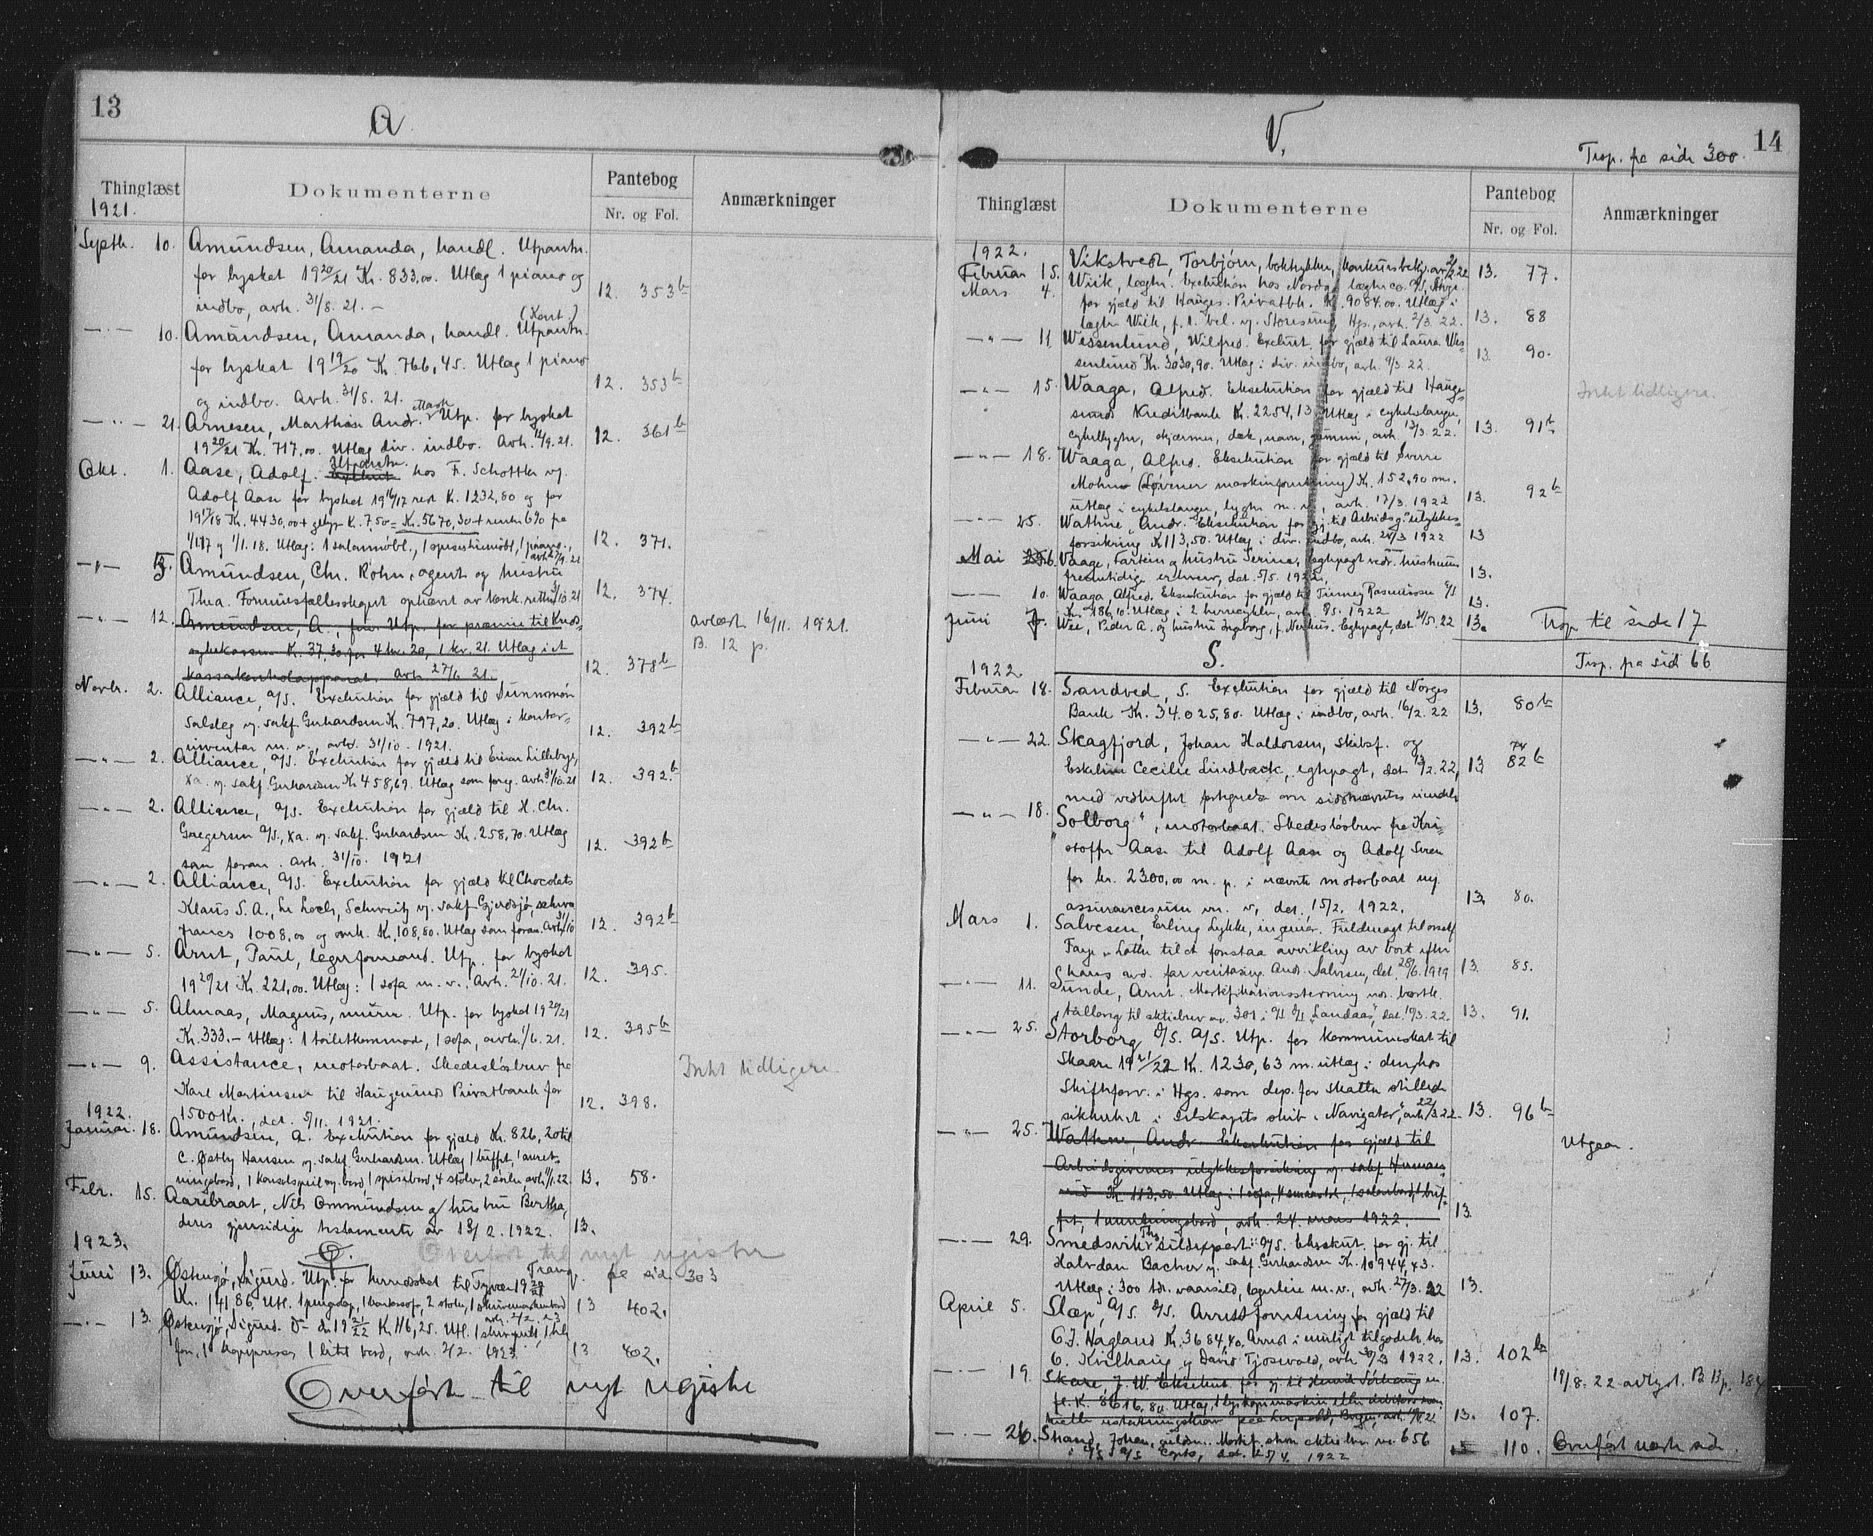 13
A
Thinglæst
Dokumenterne
Pantebog
Nr. og Fol.
Anmærkninger
1921.
Septh. 10. Amundsen, Amanda, handl. Utpantn.
for byskat 1920/21 Kr. 833,00. Utlæg 1 piano og
indbo, avh. 31/8. 21. – 12. 353b
(Kont.)
—"— 10. Amundsen, Amanda, handl. Utpantn.
for byskat 1919/20 Kr. 766,45. Utlæg 1 piano
og indbo. Avh. 31/8. 21. 12. 353b
—"— 21. Arnesen, Marthon Andr. Utp. for byskat
1920/21 Kr. 717,00. Utlæg div. indbo. Avh. 9.21. 12. 361b
Okt. 1. Aase, Adolf. Utpantn. hos F. Schøtther vg.
Adolf Aase for byskat 1916/17 rest K. 1232,80 og for
1917/18 Kr. 4430,00 + gebyr K. 7,50 = Kr. 5670,30 + renter 6% fra
1/1.17 og 1/1.18. Utlæg: 1 salonmøbl., 1 spisestuemøbl, 1 piano., 12. 371.
Amundsen, Chr. Røhn, agent og hustru
Thea. Formuesfællesskapet ophævet av 12. 374.
—"— 12. Amundsen, A., Utp. for præmie til
sykekassen K. 37,30 for 4 kv. 20, 1 kv. 21. Utlæg i et
kassakontrolapparat. avh 27/6 21. 12. 378b
avlæst 16/11. 1921.
B. 12 p.
Novbr. 2. Alliance, A/S. Exekution for gjæld til Sunnmøn
Salsleg v. sakf. Gerhardsen Kr. 797,20. Utlæg i kontor-
inventar m. v., avh. 31/10. 1921. 12. 392b
—"— 2. Alliance, A/S. Exekution for gjæld til Einar Lilleby,
Xa. v. sakf. Gerhardsen Kr 458,69. Utlæg som foreg. avh 31/10.21 12. 392b
—"— 2. Alliance, A/S. Exekution for gjæld til H. Chr.
Gregersen A/S., Xa. v. sakf. Gerhardsen Kr. 258,70. Utlæg
som foran. avh. 31/10. 1921 12. 392b
—"— 2. Alliance, A/S. Exekution for gjæld til Chocolats
Klaus S.A., Le Locle, Schweitz v. sakf. Gjerdsjø, schw
francs 1008,00 og omk. Kr. 108,80. Utlæg som foran. avh 31/10 12. 392b
—"— 5. Arnt, Paul, lagerformand. Utp. for byskat
1920/21 Kr. 221,00. Utlæg: 1 sofa m. v., avh. 21/10. 21. 12. 395.
—"— 5. Almaas, Magnus, murer. Utp. for byskat 1920/21
Kr. 333.– Utlæg: 1 toiletkommode, 1 sofa, avh. 1/6. 21. 12. 395b
—"— 9. Assistance, motorbaat. Skadesløsbrev fra
Karl Martinsen til Haugesunds Privatbank for
1500 Kr., dat. 5/11. 1921. 12. 398.
Intet tidligere.
1922.
Januar. 18. Amundsen, A. Exekution for gjæld Kr. 826,20 til
C. Østby Hansen v. sakf. Gerhardsen. Utlæg 1 buffet, 1 anret-
ningsbord, 1 konsolspeil m. bord, 1 spisebord, 4 stoler, 2 avh. 1/1.22 13. 58.
Febr. 15. Aarebraat, Nils Ommundsen og hustru Bertha,
deres gjensidige testamente av 18/2. 1922. 13.
1923.
Ø. Overført til nyt register
Juni 13. Østensjø, Sigurd. Utp. for herredskat til Tysvær 19
Transp. fra side 303
Kr. 141,86. Utl. 1 pengeskap, 2 stoler, 1 skrivemaskinbord 13 402.
—"— 13. Østensjø, Sigurd. D– 1921/22 K. 116,25. Utl. 1
1 kopipresse, 1 litet bord, avh. 2/2. 1923. 13 402.
Overført til nyt register
14
V.
Trsp. fra side 300.
Thinglæst
Dokumenterne
Pantebog
Nr. og Fol.
Anmærkninger
1922.
Februar 15. Vikstvedt, Torbjørn, boktrykker, konkursbeskj. av 2/2 22 13. 77.
Mars 4. Wiik, lægter. Exekution hos Nordgs lægter co. A/S, Hgs.
for gjæld til Hauges. Privatbk. K. 9084.00. Utlæg i
lægter Wiik, Hgs., avh. 2/3. 22. 13. 88
—"— 11. Wessenlund, Wilfred. Exekut. for gjæld til Laura Wes-
senlund Kr. 3030,90. Utlæg i div. indbo, avh. 9/3. 22. 13. 90.
—"— 15. Waaga, Alfred. Eksekution for gjæld til Hauge-
sunds Kreditbank K. 2254,13. Utlæg i cykelslanger,
cykellygter, skjærmer, dæk, navn, gummi, avh. 13/3. 22. 13. 91b
Intet tidligere.
—"— 18. Waaga, Alfred. Eksekution for gjæld til Sverre
Mohn (Løvener maskinforretning) K. 152,90 m.
utlæg i cykelslanger, lygter m. v., avh. 17/3. 1922 13. 92b
—"— 25. Wathne, Andr. Eksekution for gj. til Arbeidsg. ulykkes-
forsikring K 113,50. Utlæg i div. indbo, avh. 24/3 1922 13
Mai Vaage, Fartein og hustru Serina, egtepagt vedr. hustruens
fremtidige erhverv, dat. 5/5. 1922, 13.
—"— 10. Waaga, Alfred. Eksekution for gjæld til Tinney Rasmussen
Kr. 186,10. Utlæg i 2 herrecykler, avh. 8/5. 1922 13.
Juni 7. Wee, Peder A. og hustru Ingeborg, f. Nerhus. Egtepagt, dat. 31/5. 22 13.
Trsp. til side 17
S.
Trsp. fra side 66
1922
Februar 18. Sandved, S. Exekution for gjæld til Norges
Bank Kr. 34.025,80. Utlæg i indbo, avh. 16/2. 22 13. 80b
—"— 22. Skagfjord, Johan Haldorsen, skibsf. og
Eskeline Cecilie Lindback, egtepagt, dat. 13/2. 22, 13. 82b
med vedheftet fortegnelse over sidstnævntes eiendele
—"— 18. "Solborg", motorbaat. Skadesløsbrev fra Kri-
stoffer Aase til Adolf Aase og Adolf Sveen
for kr. 2300,00 m. p. i nævnte motorbaat og
assurancesum m. v., dat. 15/2. 1922. 13. 80.
Mars 1. Salvesen, Erling Lykke, ingeniør. Fuldmagt til orsakf
Faye & Lothe til at forestaa avvikling av boet efter
hans avd. far Andr. Salvesen, dat. 28/6. 1919 13. 85.
—"— 11. Sunde, Arnt. Mortifikationsstevning vedr. bortk.
tillæg til aktiebrev nr. 301 i A/S D/S "Landaas", dat. 10/3. 22. 13. 91.
—"— 25. Storborg D/S. A/S. Utp. for kommuneskat til
Skaare 1921/22 K. 1230,63 m. utlæg i den hos
Skifteforv. i Hgs. som dep. for skatten stillede
sikkerhet i selskapets skib "Navigator", avh 22/3 22. 13. 96b
—"— 25. Wathne, Andr. Eksekution for gjæld til
Arbeidsgivernes ulykkesforsikring v. sakf Hermans
Kr. 113,50. Utlæg i 1 sofa, 1 salonbord, 1 buf-
fet, 1 anretningsbord, avh. 24. mars 1922. 13.
Utgaar.
—"— 29. Smedsvik Ths. sildexport A/S. Eksekut. for gj. til
Halvdan Backer v. sakf. Gerhardsen Kr. 10944,43.
Utlæg i 300 tdr. vaarsild, lagerleie m. v., avh. 27/3. 22 13.
April 5. Slæp, A/S. D/S. Arrestforretning for gjæld til
O.J. Hagland Kr. 3684,40. Arrest i mulig tilgodeh. hos
O. Kvilhaug og David Tjosvold, avh. 30/3 1922. 13. 102b
—"— 19. Skare, J. W. Eksekut. for gj. til Henrik Sørhaug m.
fl. K. 8616,80. Utlæg 1 lyskopimaskin eller 13. 107.
19/8. 22 avlyst. B 13 p. 184
—"— 26. Strand, Johan, aktiebrev nr. 656
i D/S A/S "Conto", dat. 25/4. 1922 110. Overført næste side.